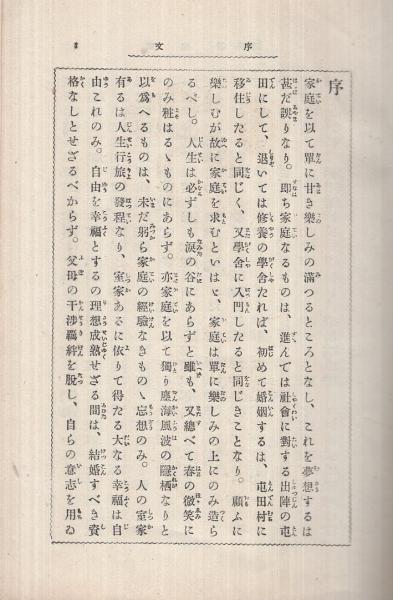 序文
序
家庭を以て單に甘き樂しみの滿つるところとなし、これを夢想するは
甚だ誤りなり。卽ち家庭なるものは、進んでは社會に對する出陣の屯
田にして、退いては修養の學舍たれば、初めて婚姻するは、屯田村に
移住したると同じく、又學舍に入門したると同じきことなり。顧ふに
樂しむが故に家庭を求むといはゞ、家庭は單に樂しみの上にのみ造ら
るべし。人生は必ずしも淚の谷にあらずと雖も、又總べて春の微笑に
のみ粧はるゝものにあらず。亦家庭を以て獨り塵海風波の隱栖なりと
以爲へるものは、未だ躬ら家庭の經驗なきものゝ妄想のみ。人の室家
有るは人生行旅の發程なり、室家あるに依りて得たる大なる幸福は自
由これのみ。自由を幸福とするの理想成熟せざる間は、結婚すべき資
格なしとせざるべからず。父母の干涉羈絆を脫し、自らの意志を用ゐ